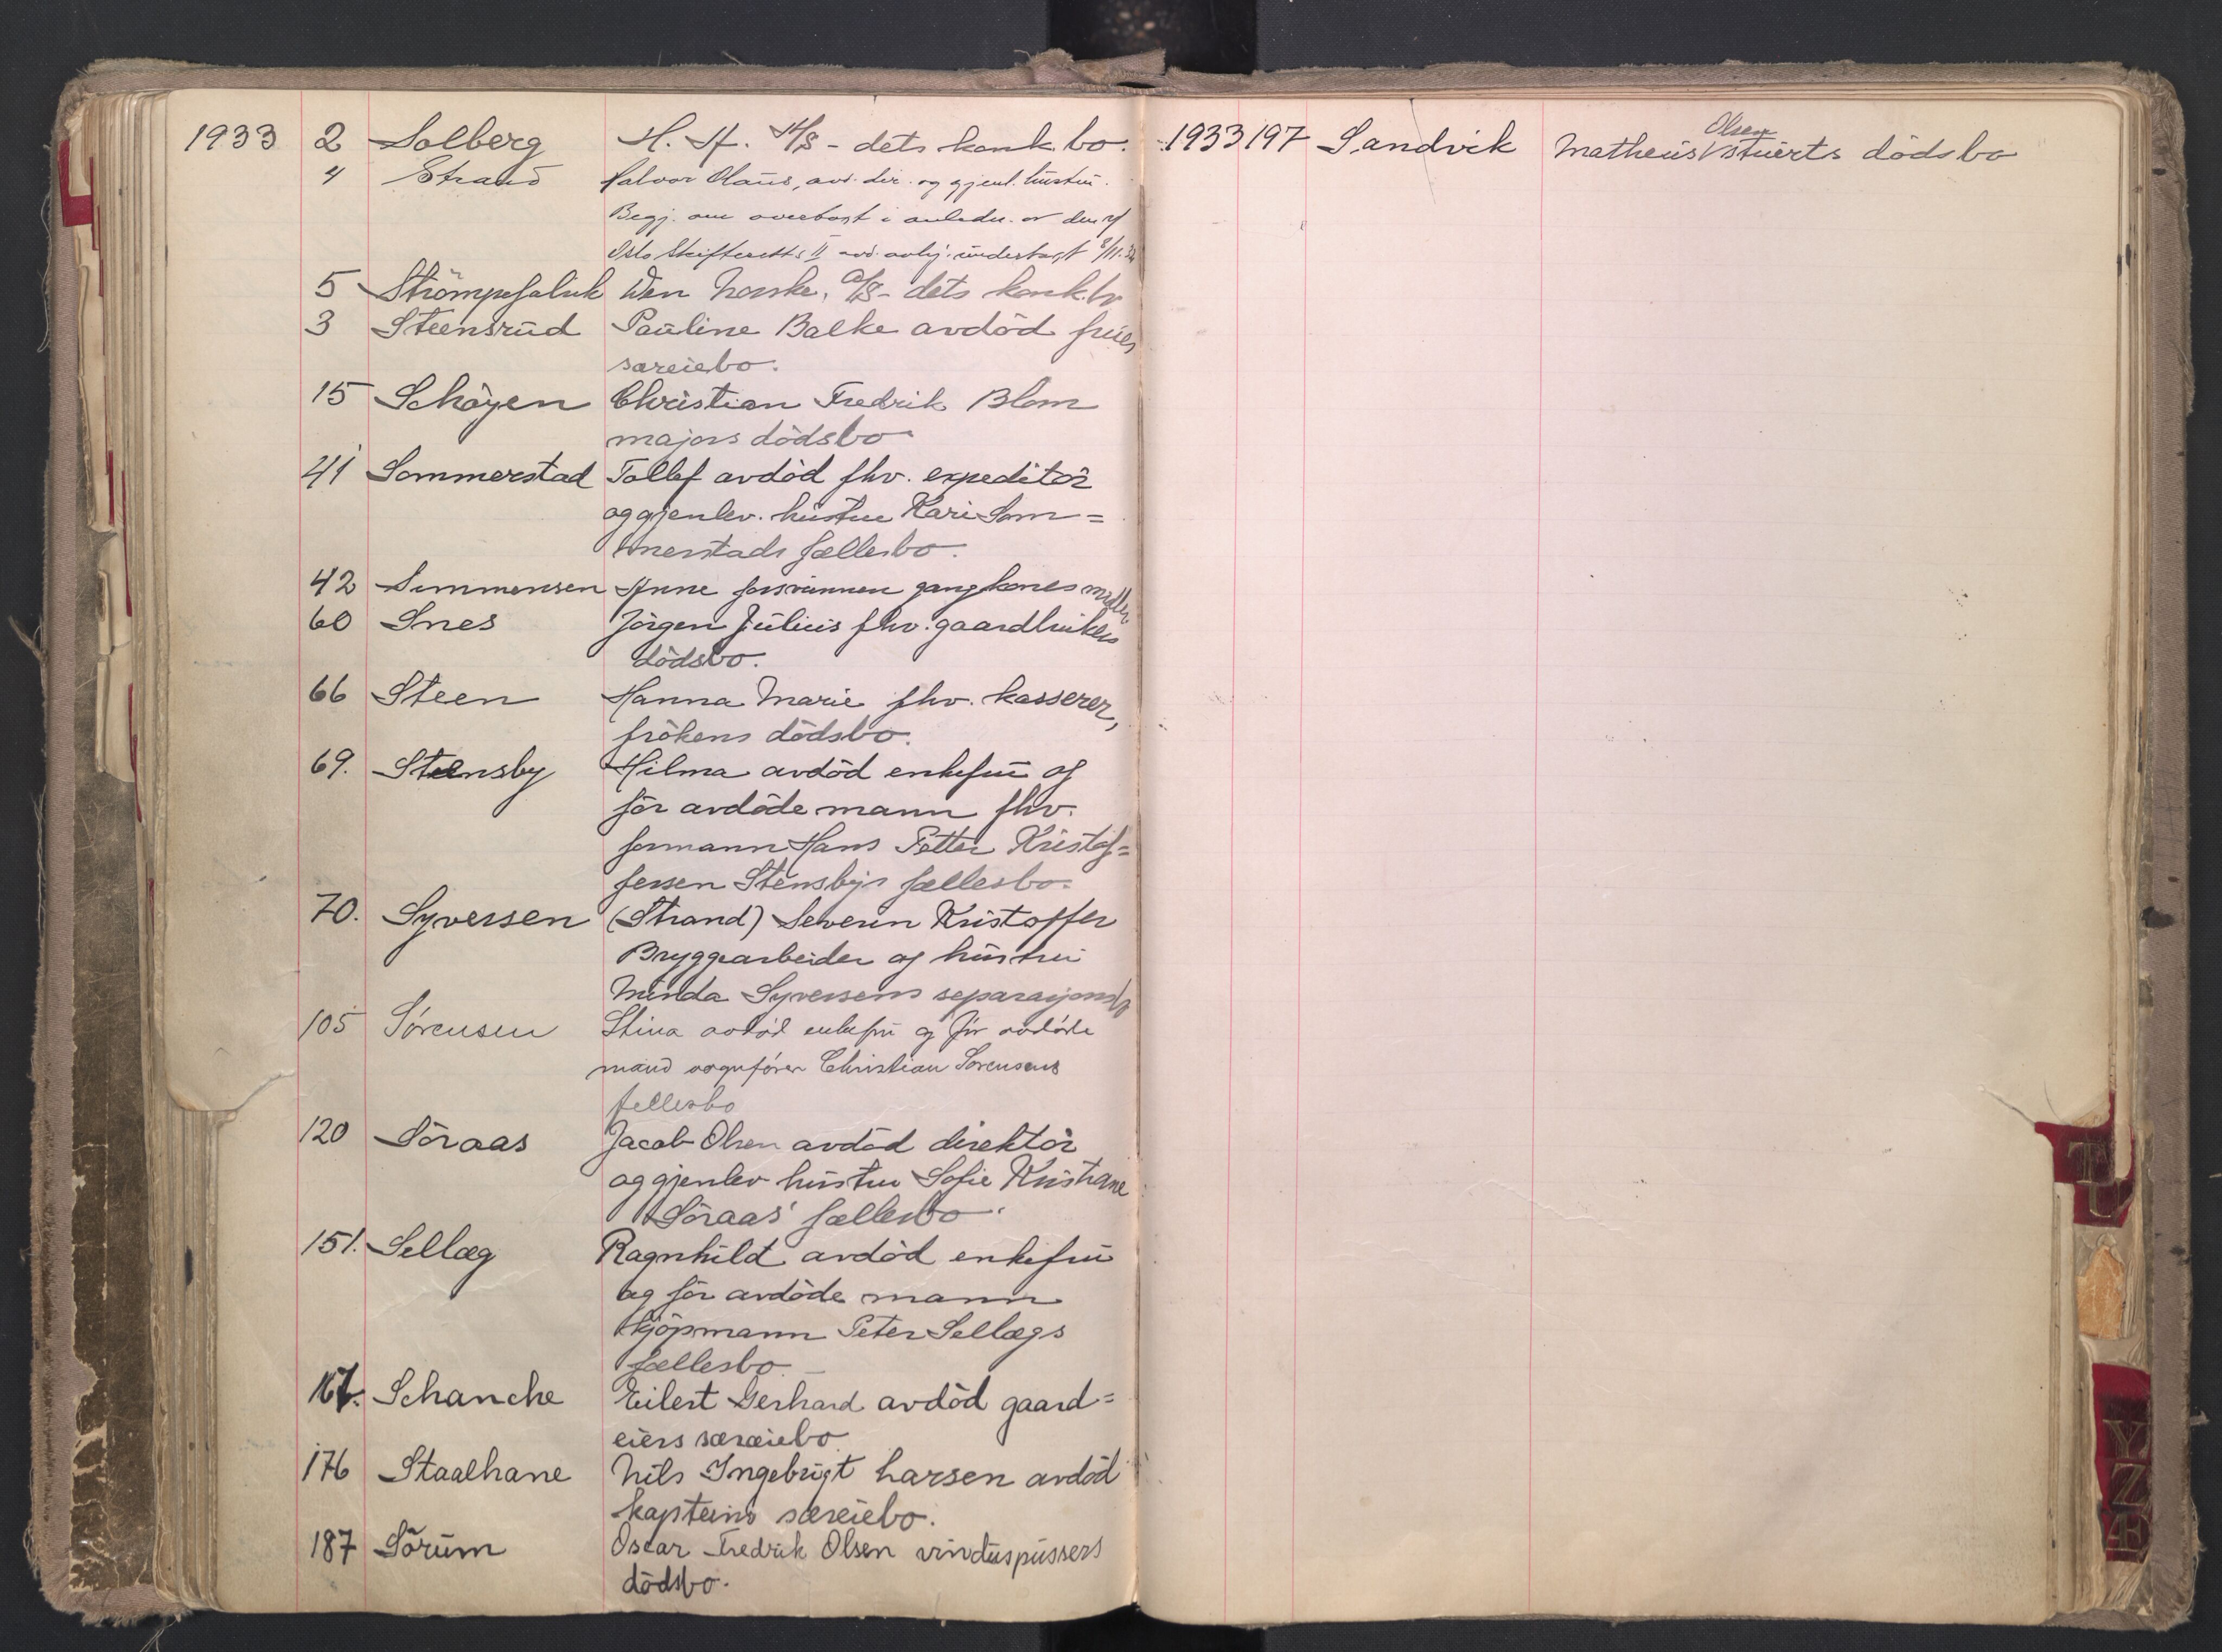 1933 2 Solberg H. H. A/S - dets konk.bo.
4 Strand Halvor Olaus, avd. dir. og gjenl. hustru.
Begj. om overtagt i anledn. av den af
Oslo Skifteretts II avd. avhj. undertagt 8/11.32
5 Strömpefabrik Den Norske, A/S - dets konk.bo
3 Steensrud Pauline Balke avdöd frues
særeiebo.
15 Schöyen Christian Fredrik Blom
majors dödsbo
41 Sommerstad Tollef avdöd fhv. expeditör
og gjenlev. hustru Kari Som=
merstads fællesbo.
42 Simmensen Anne forsvunnen gangkones midler
60 Snes Jörgen Julius fhv. gaardbrukers
dödsbo.
66 Steen Hanna Marie fhv. kasserer,
frökens dödsbo.
69. Stensby Hilma avdöd enkefru og
för avdöde mann fhv.
formann Hans Petter Kristof=
fersen Stensbys fællesbo.
70. Syversen (Strand) Severin Kristoffer
Bryggearbeider og hustru
Minda Syversens separasjonsbo
105 Sørensen Stina avdød enkefru og før avdøde
mand vognfører Christian Sørensens
fellesbo
120 Söraas Jacob Olsen avdöd direktör
og gjenlev hustru Sofie Kristiane
Söraas' fællesbo.
151. Sellæg Ragnhild avdöd enkefru
og för avdöde mann
kjöpmann Peter Sellægs
fællesbo
167. Schanche Eilert Gerhard avdöd gaard=
eiers særeiebo
176 Staalhane Nils Ingebrigt Larsen avdöd
kapteins særeiebo.
187 Sörum Oscar Fredrik Olsen vinduspussers
dödsbo.
Olsen
1933 197 Sandvik Matheus stuerts dödsbo
TU
YZ
Æ